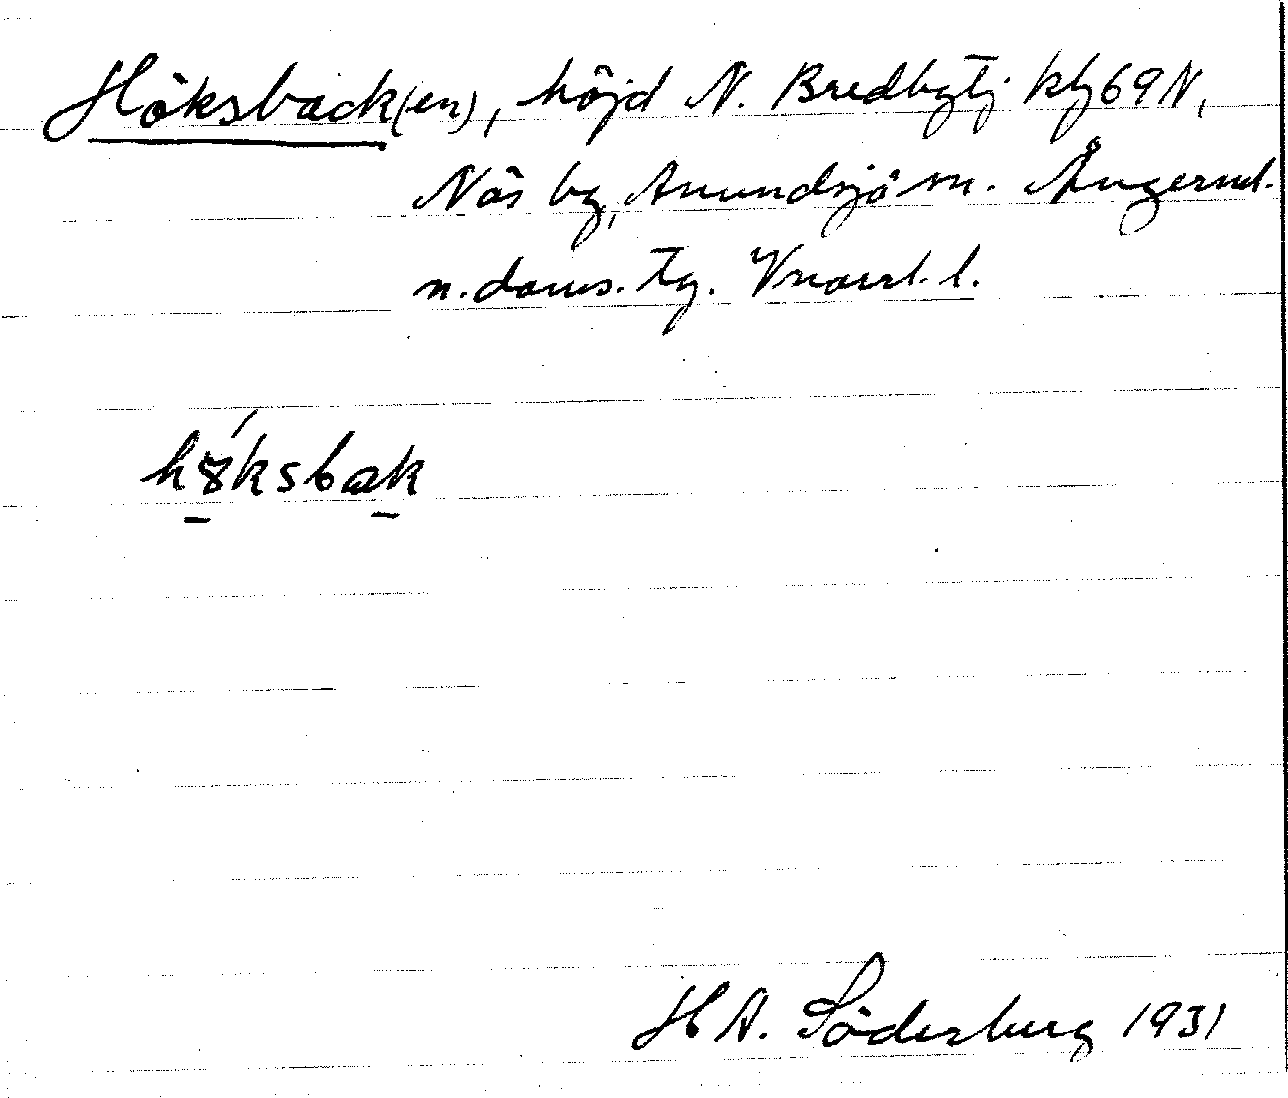 Höksback(en), höjd N. Bredbytj kbj 69 N,
Näs by, Anundsjö sn. Ångerml.
n. doms. tg. Vnorrl. l.
hǿksbak
H A. Söderberg 1931